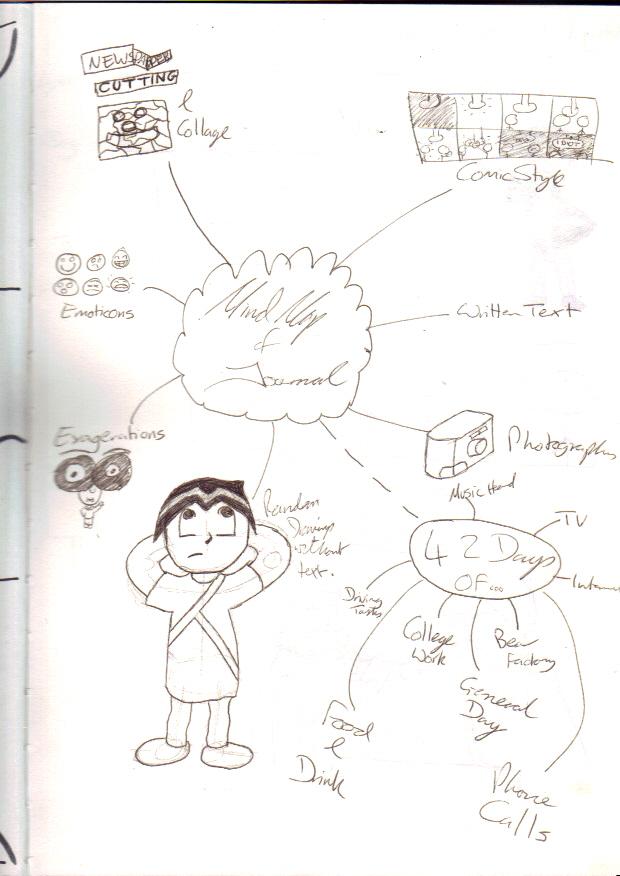 NEWSPAPER
CUTTING
&
Collage
Comic Style
Emoticons
Mind Map
of
Journal
Written Text
Exagerations
Photographs
Random
Drawings
without
text.
Music Head
TV
42 Days
OF...
Driving
College
Work
Bear
Factory
General
Day
Food
&
Drink
Phone
Calls